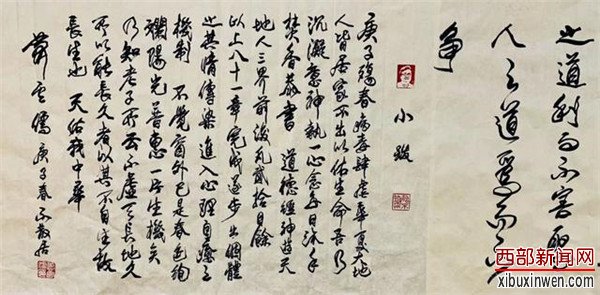 之道利而不害聖
人之道為而不
争
小跋
庚子殤春病毒肆虐華夏大地
人皆居家不出以佑生命吾乃
沉凝意神執一心念每日沐手
焚香恭書 道德經神遊天
地人三界前後凡貳拾日餘
以上八十一章完成遂步出個體
之共情傳染進入心理自癒之
機制 不覺窗外已是春色絢
斕陽光普惠一片生機矣
乃知老子所云不虛天長地久
所以能長久者以其不自生故
長生也 天佑我中華
庚子春
西部新闻网
xibuxinwen.com